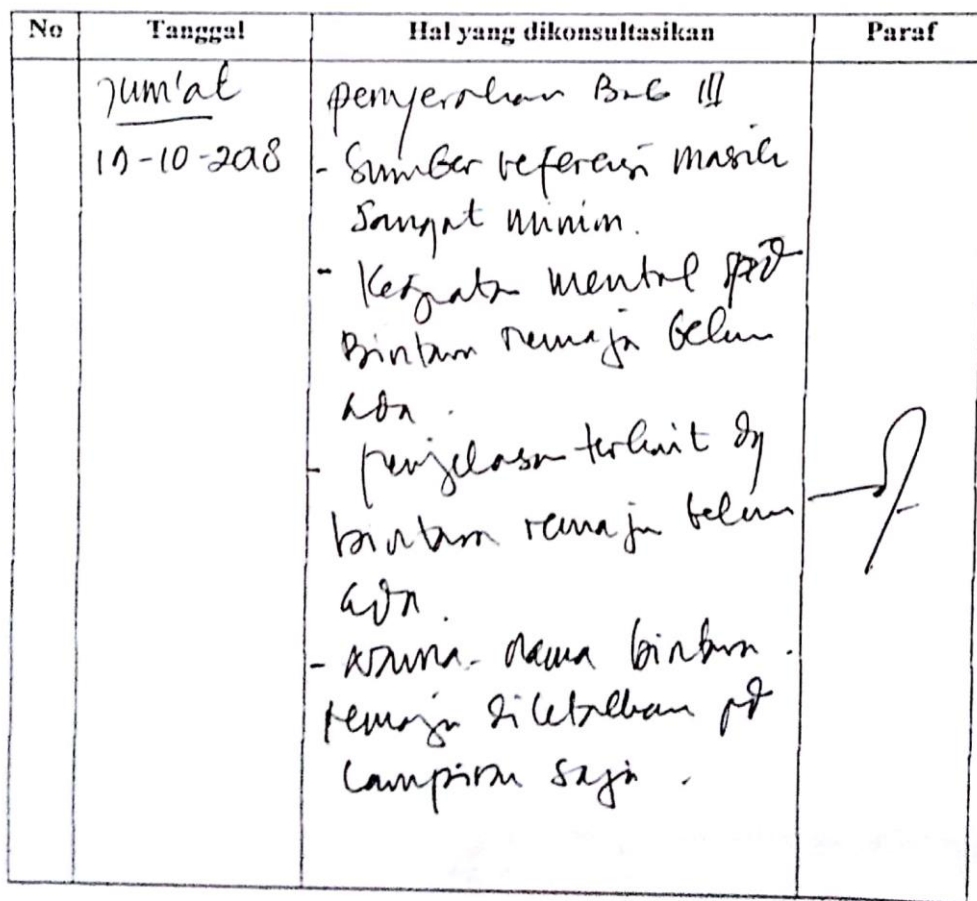 No Tanggal Hal yang dikonsultasikan Paraf
Jum'at
19-10-2018
Penyerahan Bab III
- Sumber referensi masih
sangat minim.
- Kegiatan mental
Bintara remaja belum
ada.
- penjelasan terkait dg
bintara remaja belum
ada.
- nama-nama bintara
remaja diletakkan pd
Lampiran saja.